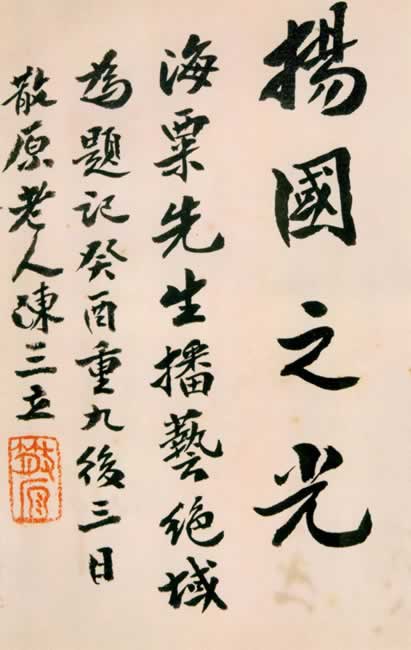 揚國之光
海粟先生播藝絕域
為題記癸酉重九後三日
散原老人陳三立
散原